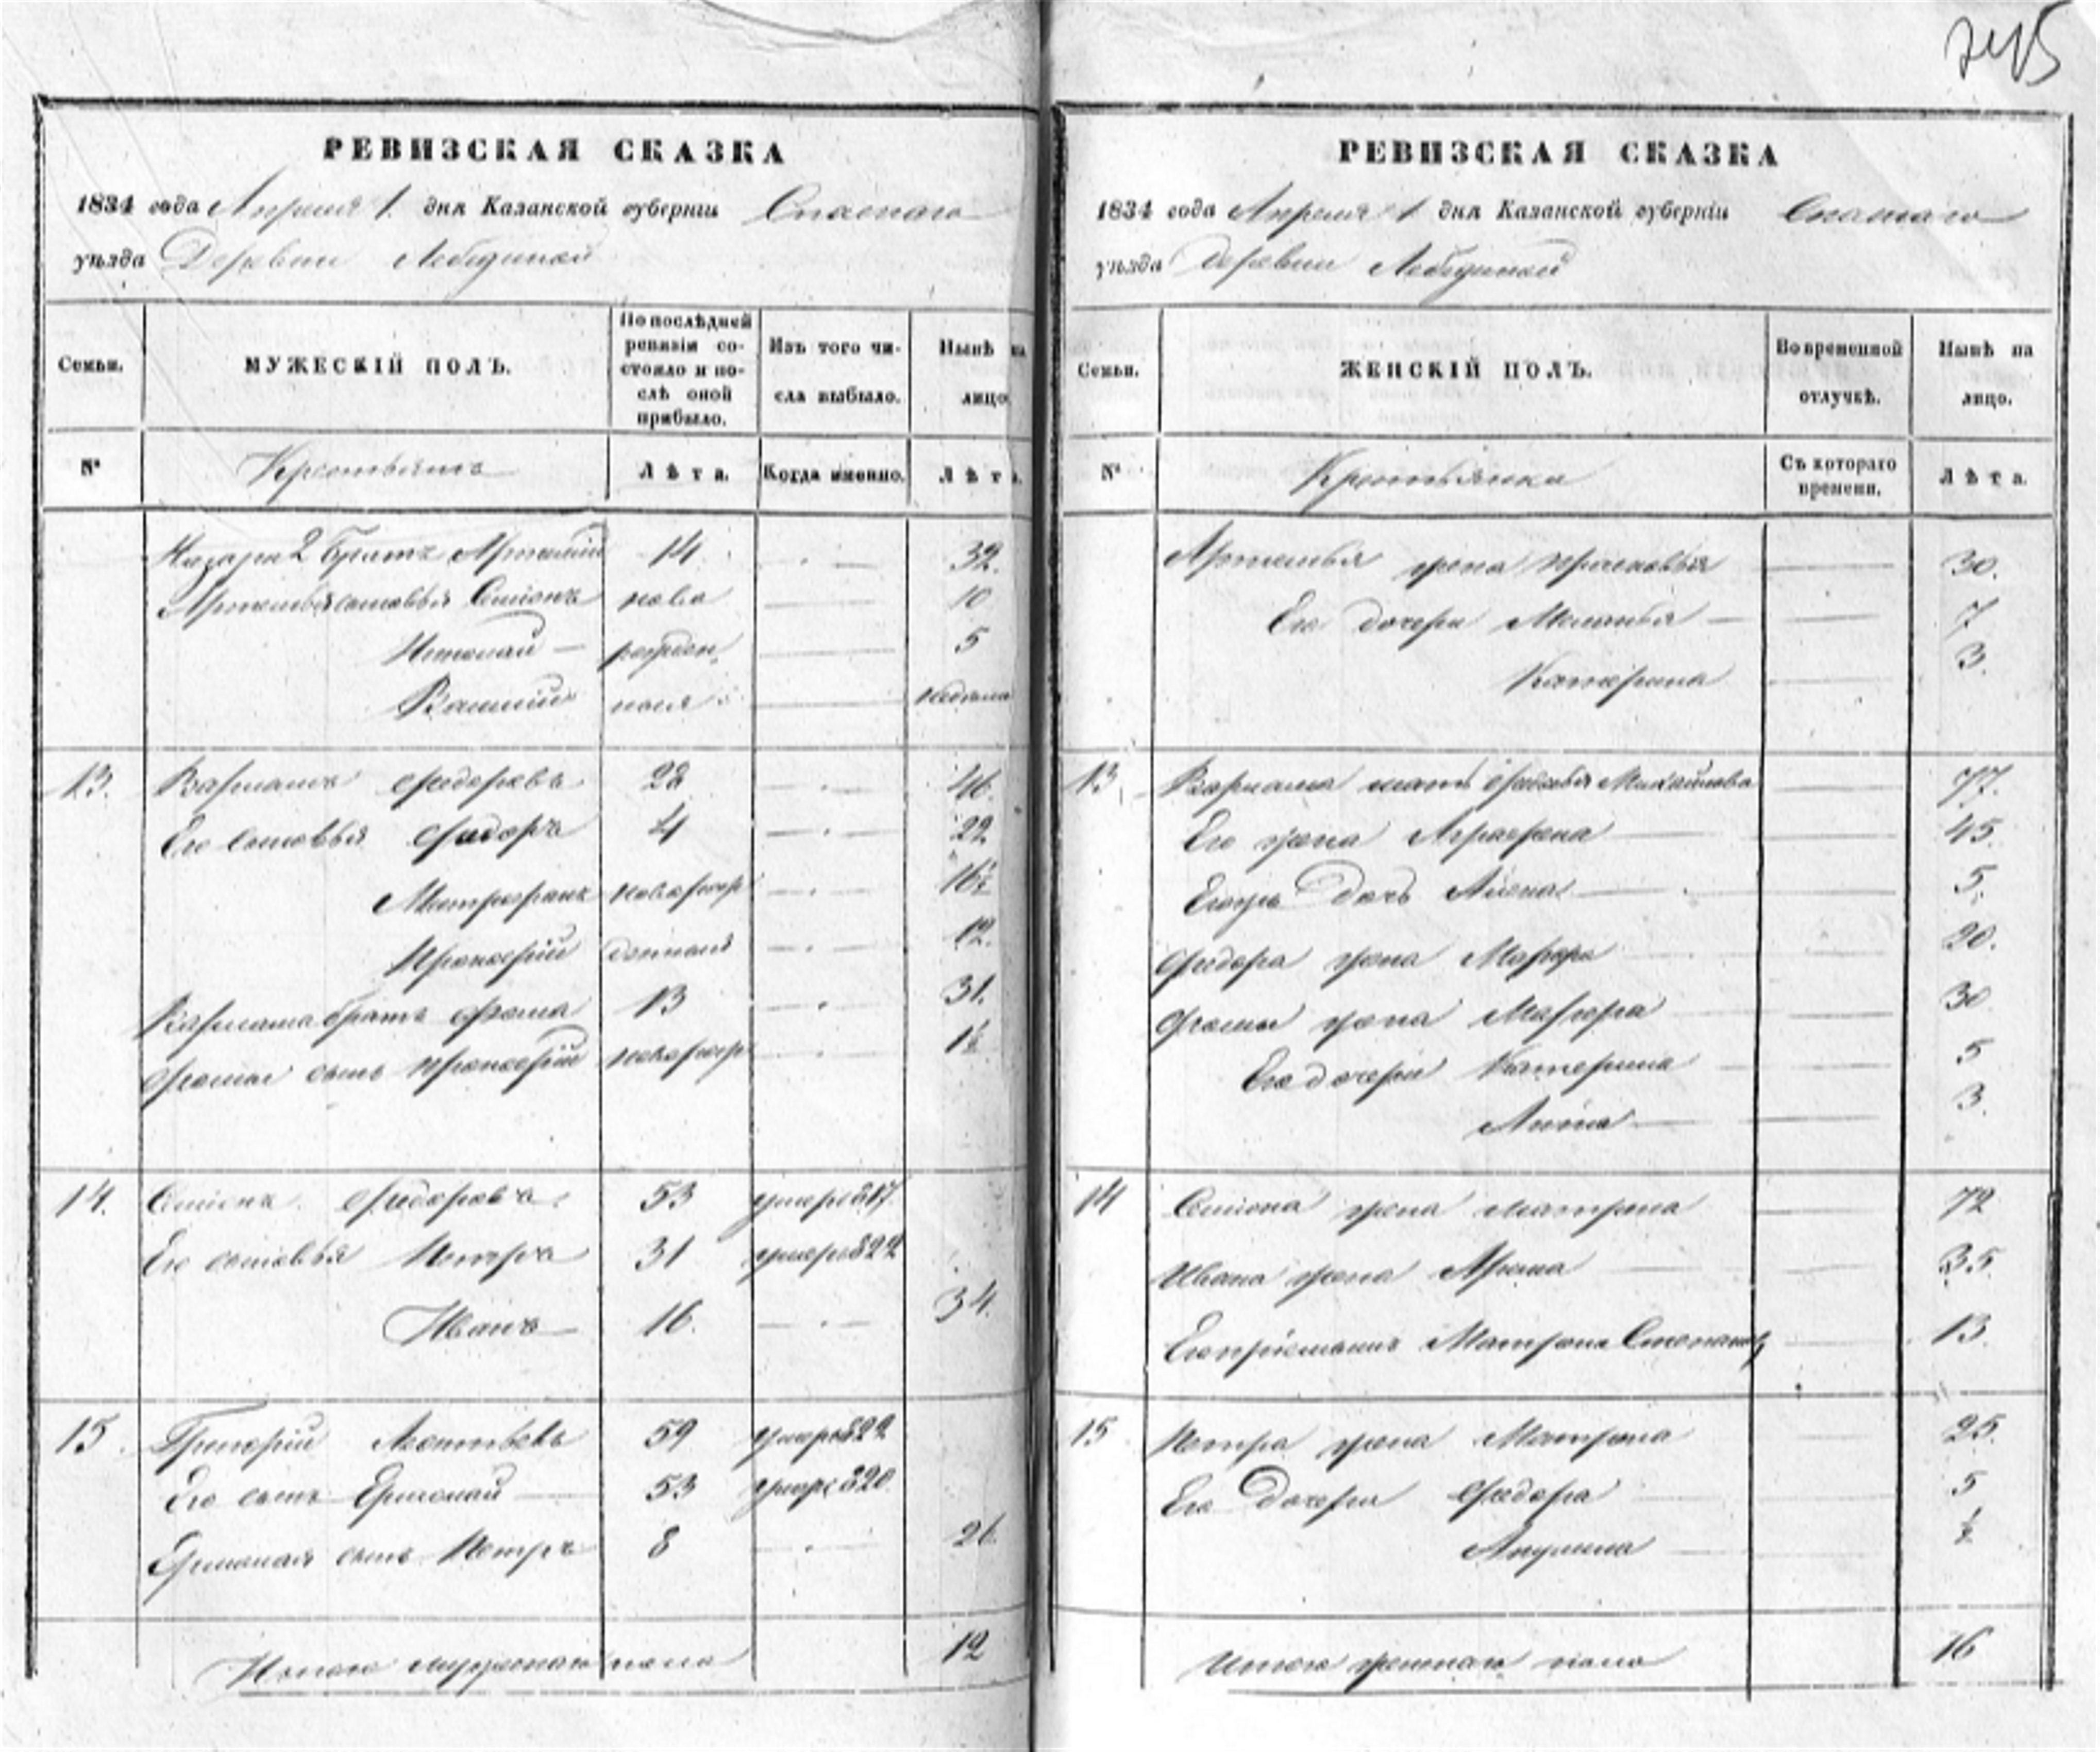 745
РЕВИЗСКАЯ СКАЗКА
1834 года Апреля 1. дня Казанской губерніи Спаскаго
уѣзда Деревни Лебединой
Семьи.
МУЖЕСКІЙ ПОЛЪ.
По послѣдней ревизіи состояло и послѣ оной прибыло.
Изъ того числа выбыло.
Нынѣ на лицо
№
Крестьянъ
Лѣта.
Когда именно.
Лѣта.
Назара 2 братъ Артемій 14 32.
Артемья сыновья Семенъ ново 10
Николай рожден. 5
Василий ныя неделя
13. Варламъ Федоровъ 28 46.
Его сыновья Федоръ 4 22
Митрофанъ новорож 16½
Прокофій денныя 12.
Варлама братъ Фома 13 31.
Фомы сынъ Прокофій новорож 1½
14. Семенъ Федоровъ. 53 умеръ 817.
Его сыновья Петръ 31 умеръ 822
Иванъ 16. 34.
15. Григорій Леонтьевъ 59 умеръ 822
Его сынъ Ермолай 53 умеръ 820
Ермолая сынъ Петръ 8 26.
Итого мужескаго пола 12
РЕВИЗСКАЯ СКАЗКА
1834 года Апреля 1 дня Казанской губерніи Спаскаго
уѣзда Деревни Лебединой
Семьи.
ЖЕНСКІЙ ПОЛЪ.
Во временной отлучкѣ.
Нынѣ на лицо.
№
Крестьянка
Съ котораго времени.
Лѣта.
Артемья жена Прасковья 30.
Его дочери Маланья 7
Катерина 3.
13 Варлама мать Федосья Михайлова 77.
Его жена Аграфена 45.
Его дочь Алена 5.
Федора жена Марфа 20.
Фомы жена Марфа 30
Его дочери Катерина 5
Анна 3.
14 Семена жена Матрена 72
Ивана жена Арина 35.
Матрена 13.
15 Петра жена Матрена 25.
Его дочери Федора 5
Акулина ½
Итого женскаго пола 16